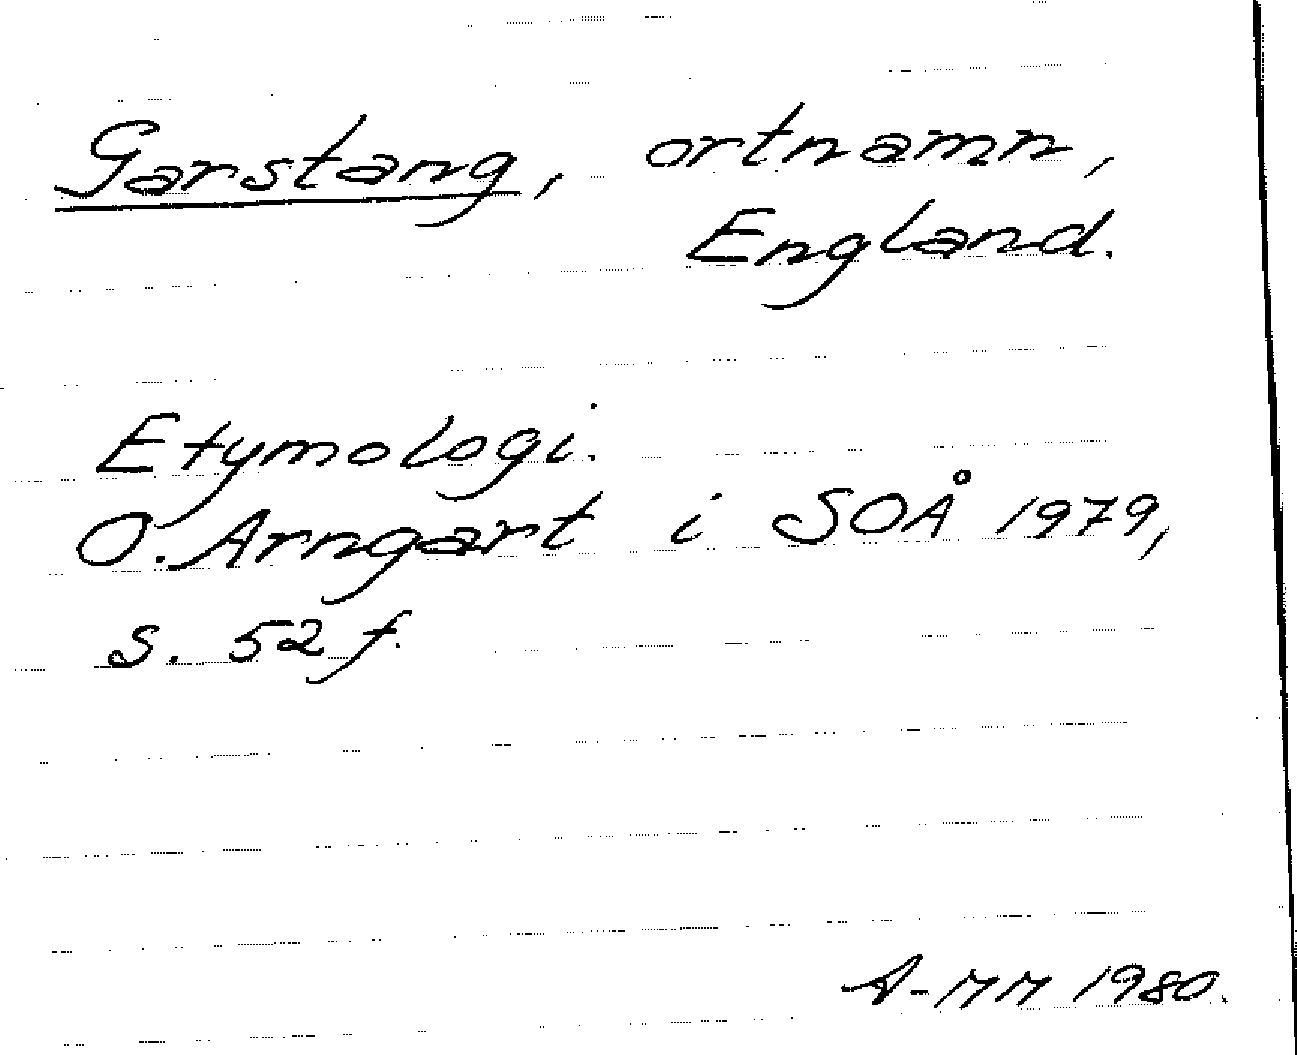 Garstang, ortnamn,
England.
Etymologi.
O. Arngart i SOÅ 1979,
s. 52 f.
A-MM 1980.